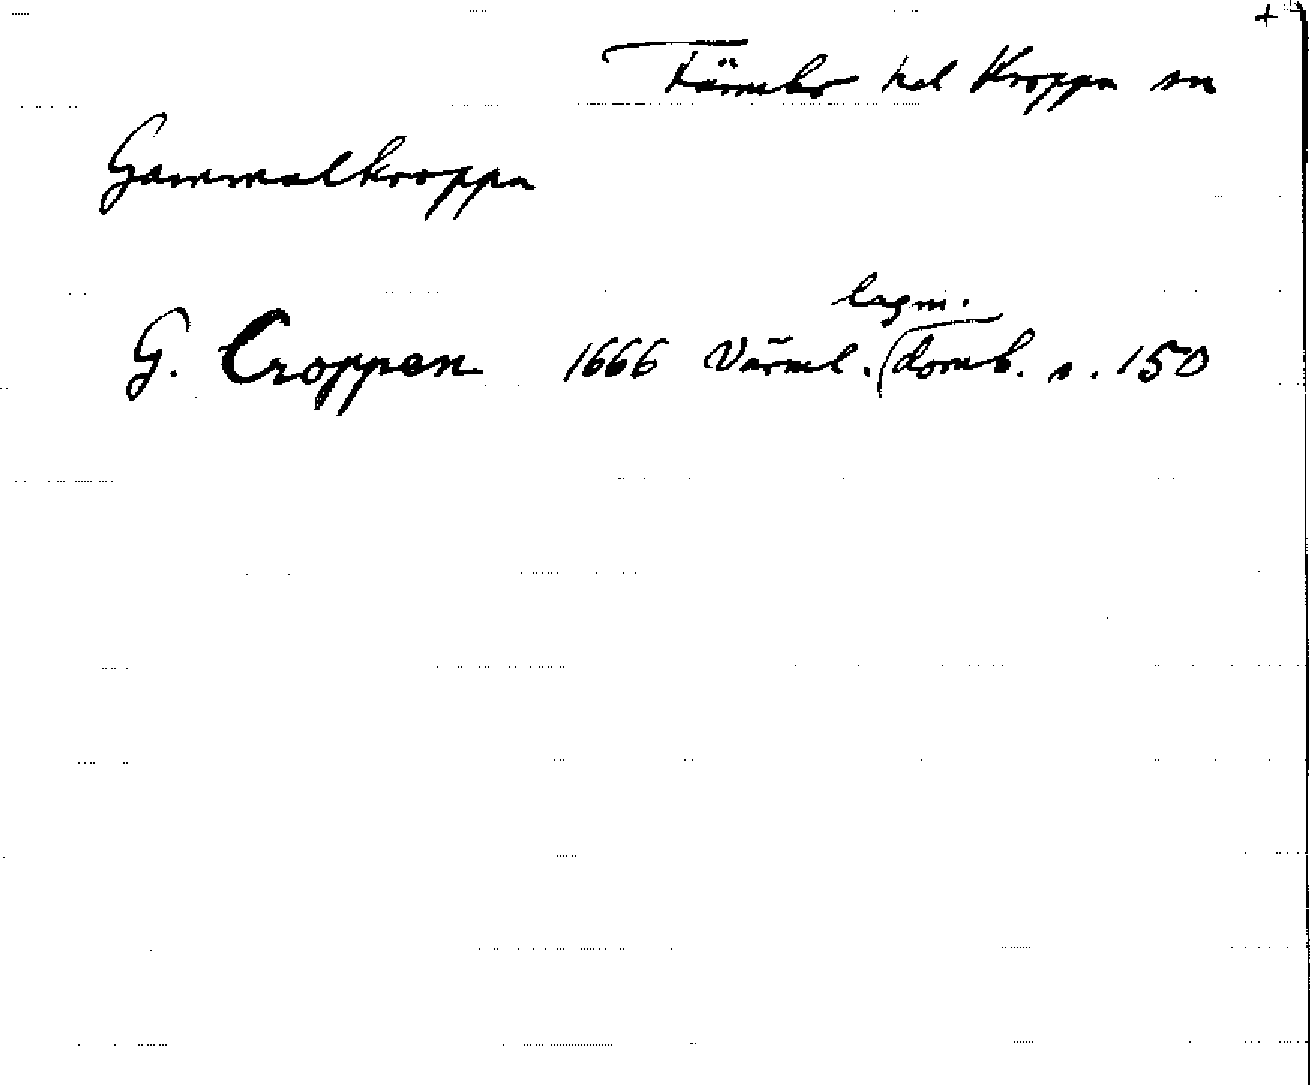 +
Färnebo hd Kroppa sn
Gammalkroppa
lagm.
G. Croppen 1666 Värml. domb. s. 150